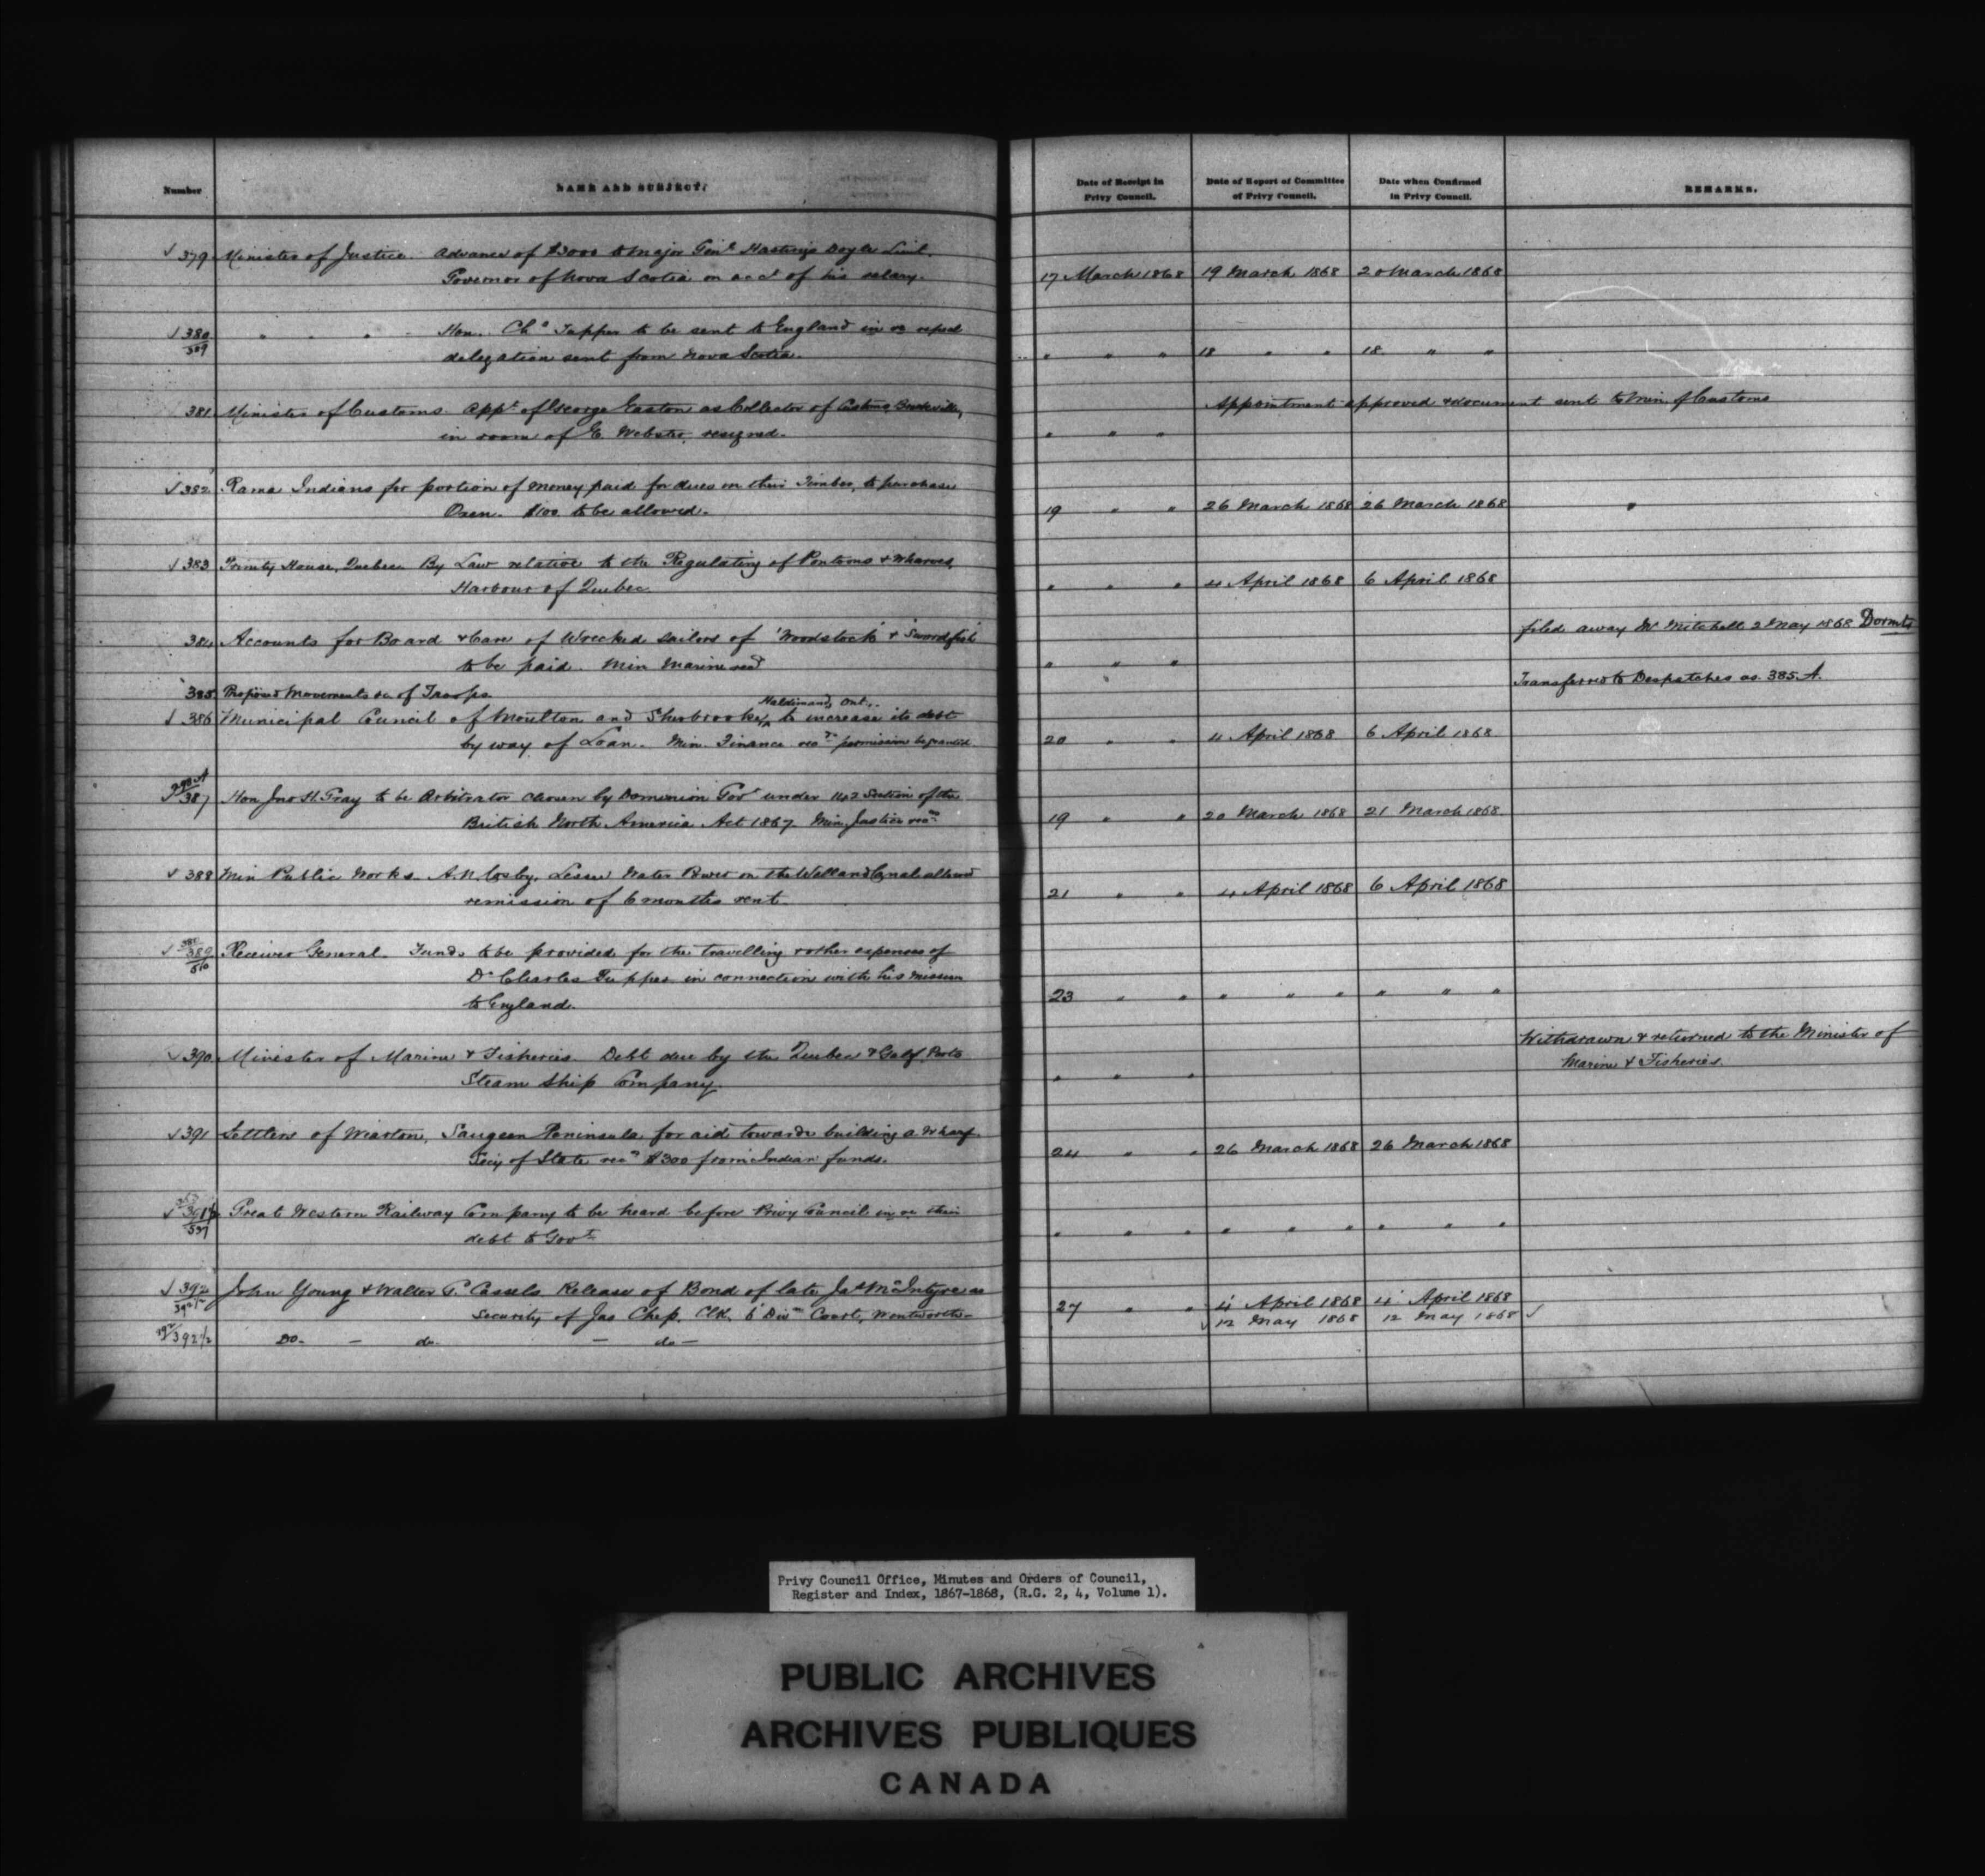 Number
NAME AND SUBJECT.
Date of Receipt in
Privy Council.
Date of Report of Committee
of Privy Council.
Date when Confirmed
in Privy Council.
REMARKS.
√ 379 Minister of Justice. Advance of $3000 to Major Genl Hastings Doyle Lieut.
Governor of Nova Scotia on acct of his salary. 17 March 1868 19 March 1868 20 March 1868
√ 380 " " " Hon. Chs Tupper to be sent to England in re repeal
389 delegation sent from Nova Scotia. " " " 18 " " 18 " "
381 Minister of Customs. Appt of George Easton as Collector of Customs Brockville, Appointment approved & document sent to Min. of Customs
in room of E. Webster, resigned. " " "
√ 382 Rama Indians for portion of money paid for dues on their Timber, to purchase
Oxen. $100 to be allowed. 19 " " 26 March 1868 26 March 1868
√ 383 Trinity House, Quebec. By Law relative to the Regulating of Pontoons & Wharves,
Harbour of Quebec. " " " 4 April 1868 6 April 1868
384 Accounts for Board & Care of Wrecked sailors of 'Woodstock' & 'Swordfish' filed away Mr Mitchell 2 May 1868 Dormts
to be paid. Min Marine recd " " "
385 Proposed Movements &c of Troops Transferred to Despatches as 385. A.
Haldimand, Ont.
√ 386 Municipal Council of Moulton and Sherbrooke, to increase its debt
by way of Loan. Min. Finance recds permission be granted 20 " " 4 April 1868 6 April 1868
√ 387 Hon Jno H. Gray to be Arbitrator chosen by Dominion Govt under 142 Section of the
British North America Act 1867. Min Justice recds 19 " " 20 March 1868 21 March 1868
√ 388 Min Public Works. A. N. Cosby, Lessee Water Power on the Welland Canal allowed
remission of 6 months rent. 21 " " 4 April 1868 6 April 1868
√ 389 Receiver General. Funds to be provided for the travelling & other expenses of
510 Dr Charles Tupper in connection with his mission
to England. 23 " " " " " " " "
√ 390 Minister of Marine & Fisheries. Debt due by the Quebec & Gulf Ports Withdrawn & returned to the Minister of
Steam Ship Company. " " " Marine & Fisheries.
√ 391 Settlers of Wiarton, Saugeen Peninsula for aid towards building a Wharf
Secy of State recds $300 from Indian funds. 24 " " 26 March 1868 26 March 1868
√ 391½ Great Western Railway Company to be heard before Privy Council in re their
537 debt to Govt " " " " " " " " "
√ 392 John Young & Walter G. Cassels Release of Bond of late Jas McIntyre as
392½ Security of Jas Chep. Clk. 6 Divn Court, Wentworth 27 " " 4 April 1868 4 April 1868
392½ Do. — do. — do — √ 12 May 1868 12 May 1868 √
Privy Council Office, Minutes and Orders of Council,
Register and Index, 1867-1868, (R.G. 2, 4, Volume 1).
PUBLIC ARCHIVES
ARCHIVES PUBLIQUES
CANADA